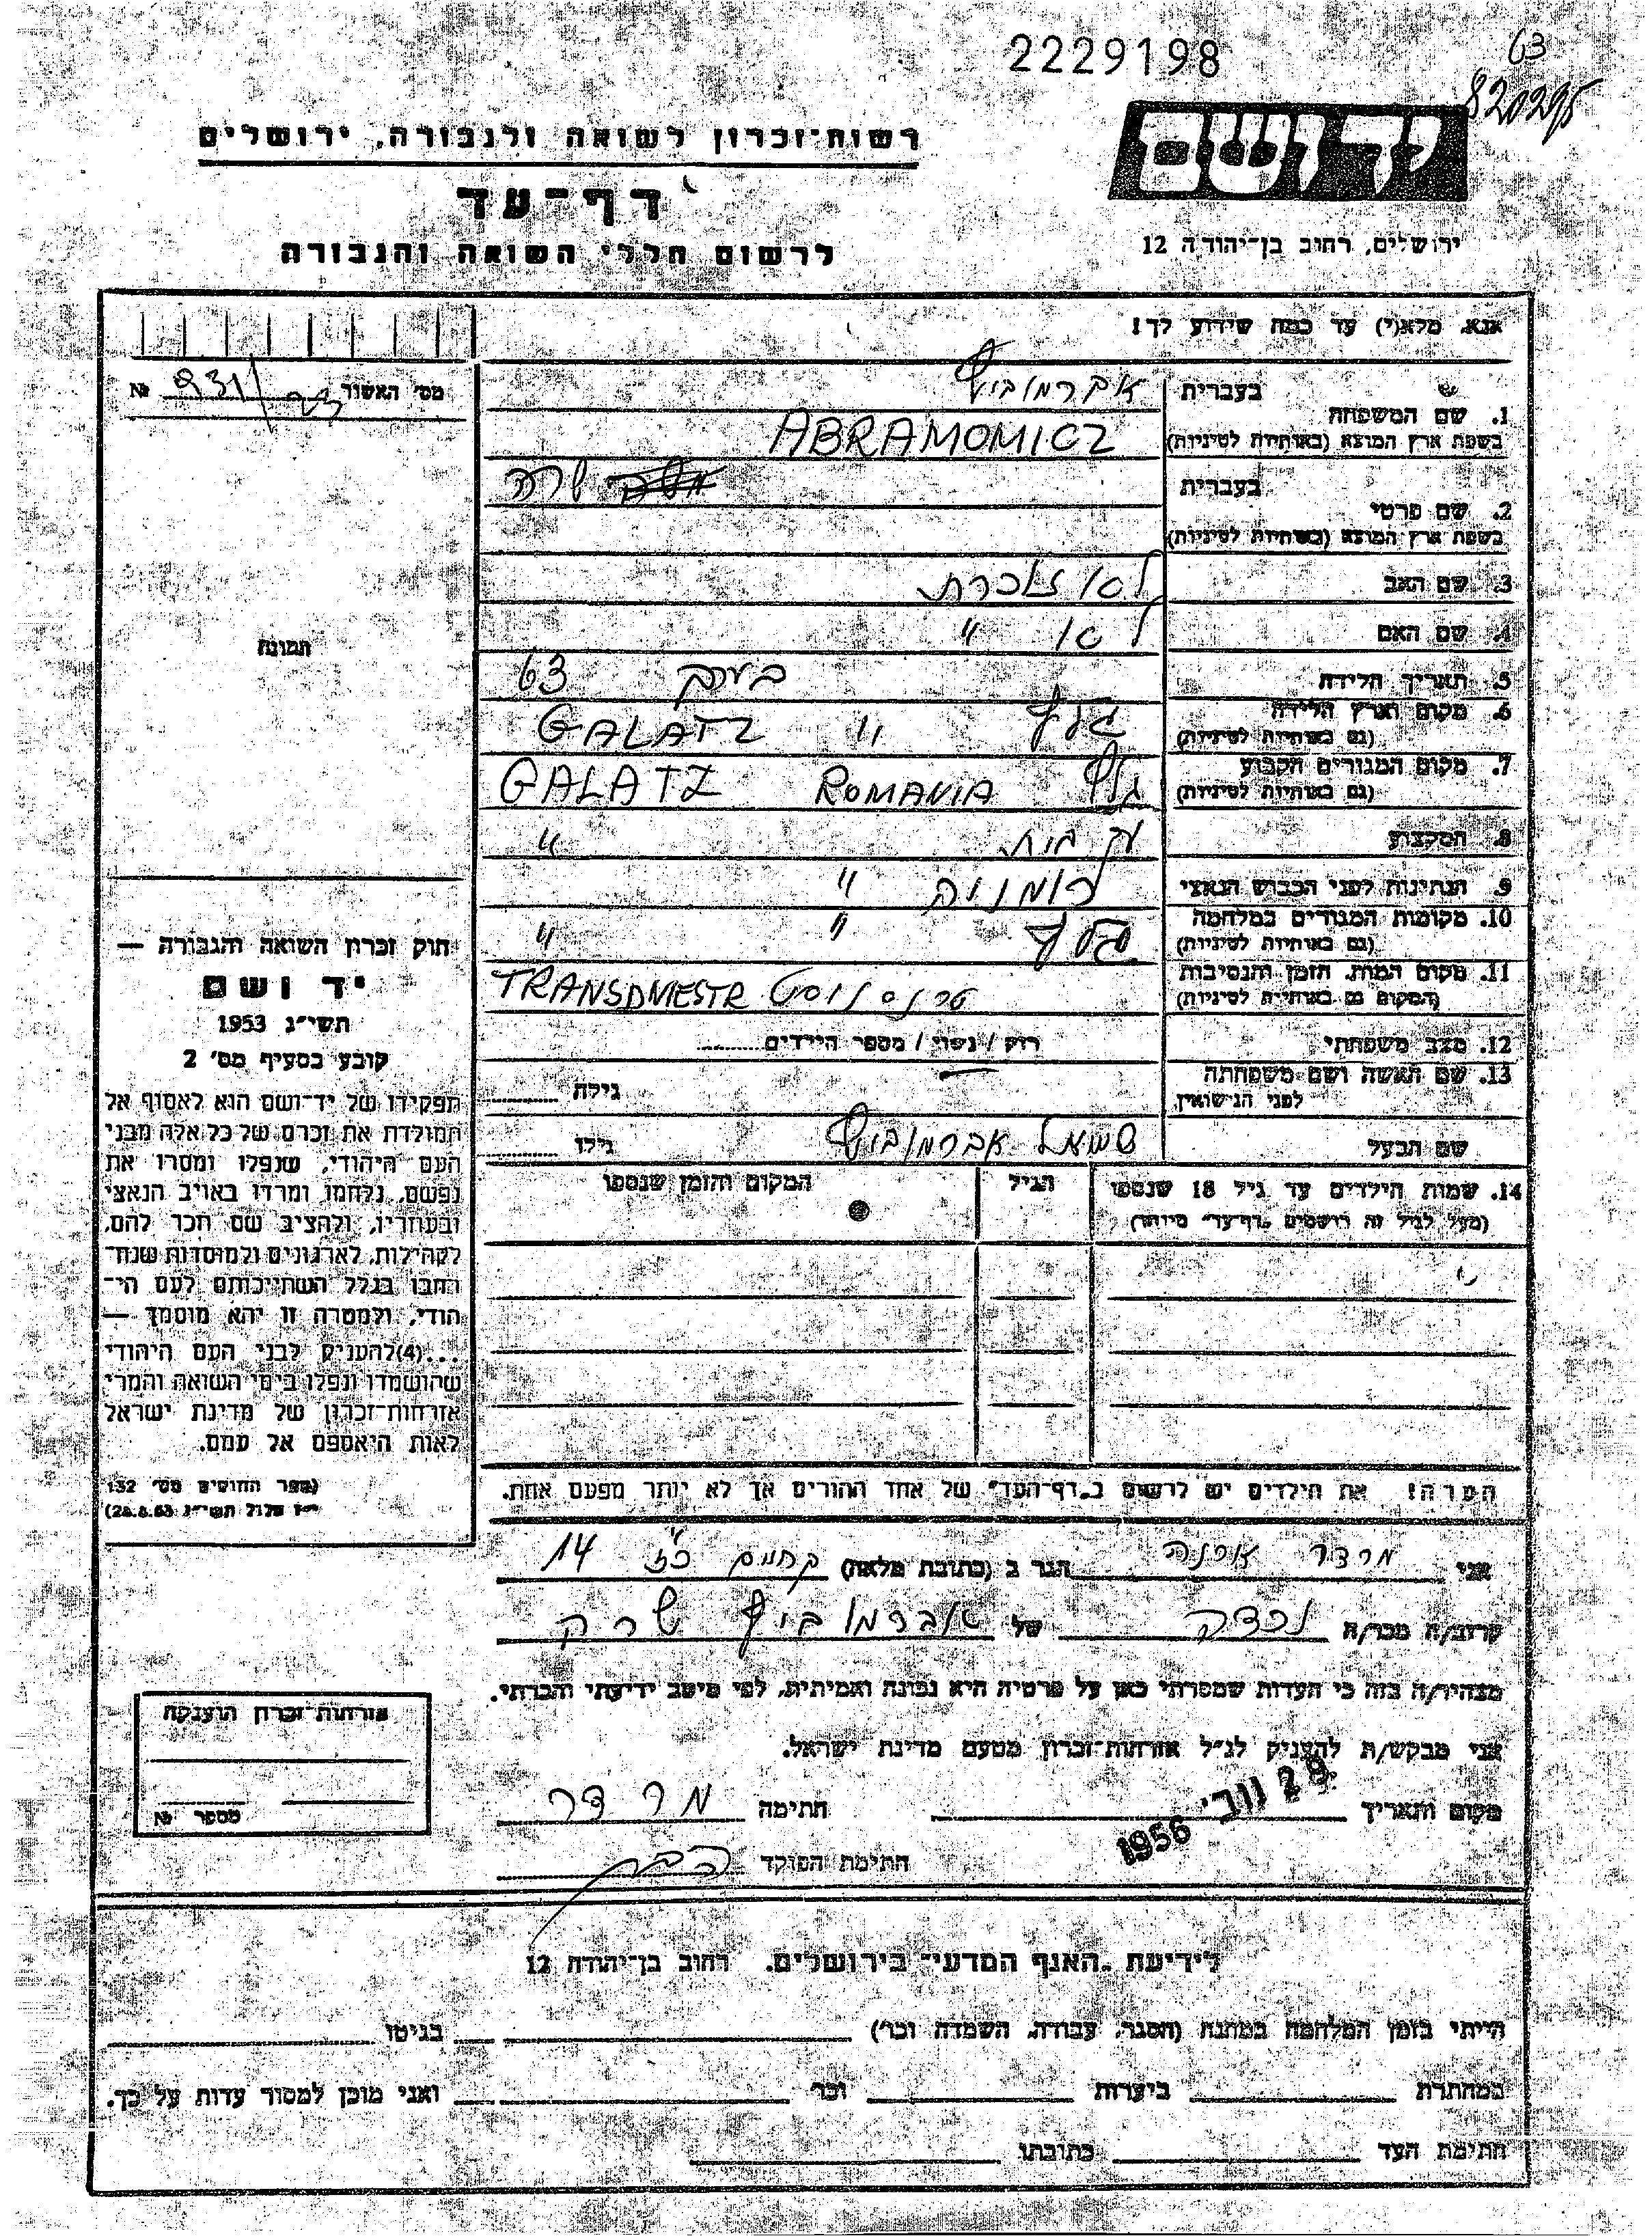 2229198
63
820295
יד ושם
ירושלים, רחוב בן־יהודה 12
רשות־זכרון לשואה ולגבורה, ירושלים
דף־עד
לרשום חללי השואה והגבורה
אנא, מלא(י) עד כמה שידוע לך!
מס' האשור 931/23 №
1. שם המשפחה
בעברית אברמוביץ
בשפת ארץ המוצא (באותיות לטיניות) ABRAMOMICZ
2. שם פרטי
בעברית שרה
בשפת ארץ המוצא (באותיות לטיניות)
3. שם האב לא זוכרת
4. שם האם לא "
5. תאריך הלידה בערך 63
6. מקום וארץ הלידה גלץ " GALATZ
(גם באותיות לטיניות)
7. מקום המגורים הקבוע גלץ ROMANIA GALATZ
(גם באותיות לטיניות)
8. המקצוע עק בית "
9. הנתינות לפני הכבוש הנאצי רומניה "
10. מקומות המגורים במלחמה גלץ " "
(גם באותיות לטיניות)
11. מקום המות, הזמן והנסיבות TRANSDNIESTR
(המקום גם באותיות לטיניות)
12. מצב משפחתי רווק / נשוי / מספר הילדים
13. שם האשה ושם משפחתה
לפני הנישואין גילה
שם הבעל שמואל אברמוביץ גילו
14. שמות הילדים עד גיל 18 שנספו הגיל המקום והזמן שנספו
(מעל לגיל זה רושמים „דף־עד" מיוחד)
תמונה
חוק זכרון השואה והגבורה —
יד ושם
תשי"ג 1953
קובע בסעיף מס' 2
תפקידו של יד־ושם הוא לאסוף אל
המולדת את זכרם של כל אלה מבני
העם היהודי, שנפלו ומסרו את
נפשם, נלחמו ומרדו באויב הנאצי
ובעוזריו, ולהציב שם וזכר להם,
לקהילות, לארגונים ולמוסדות שנח־
רבו בגלל השתייכותם לעם הי־
הודי, ולמטרה זו יהא מוסמך —
...(4)להעניק לבני העם היהודי
שהושמדו ונפלו בימי השואה והמרי
אזרחות־זכרון של מדינת ישראל
לאות היאספם אל עמם.
(ספר החוקים מס' 132
י"ז אלול תשי"ג (28.8.53)
הערה! את הילדים יש לרשום ב„דף־העד" של אחד ההורים אך לא יותר מפעם אחת.
אני הגר ב (כתובת מלאה) 14
קרוב/ה מכר/ה נכדה של אברמוביץ שרה
מצהיר/ה בזה כי העדות שמסרתי כאן על פרטיה היא נכונה ואמיתית, לפי מיטב ידיעתי והכרתי.
אני מבקש/ת להעניק לנ"ל אזרחות־זכרון מטעם מדינת ישראל.
מקום ותאריך 29 נוב' 1956 חתימה
חתימת הפוקד
אזרחות־זכרון הוענקה
מספר №
לידיעת „האגף המדעי" בירושלים, רחוב בן־יהודה 12
הייתי בזמן המלחמה במחנה (הסגר, עבודה, השמדה וכו') בגיטו
במחתרת ביערות וכו' ואני מוכן למסור עדות על כך.
חתימת העד כתובתו